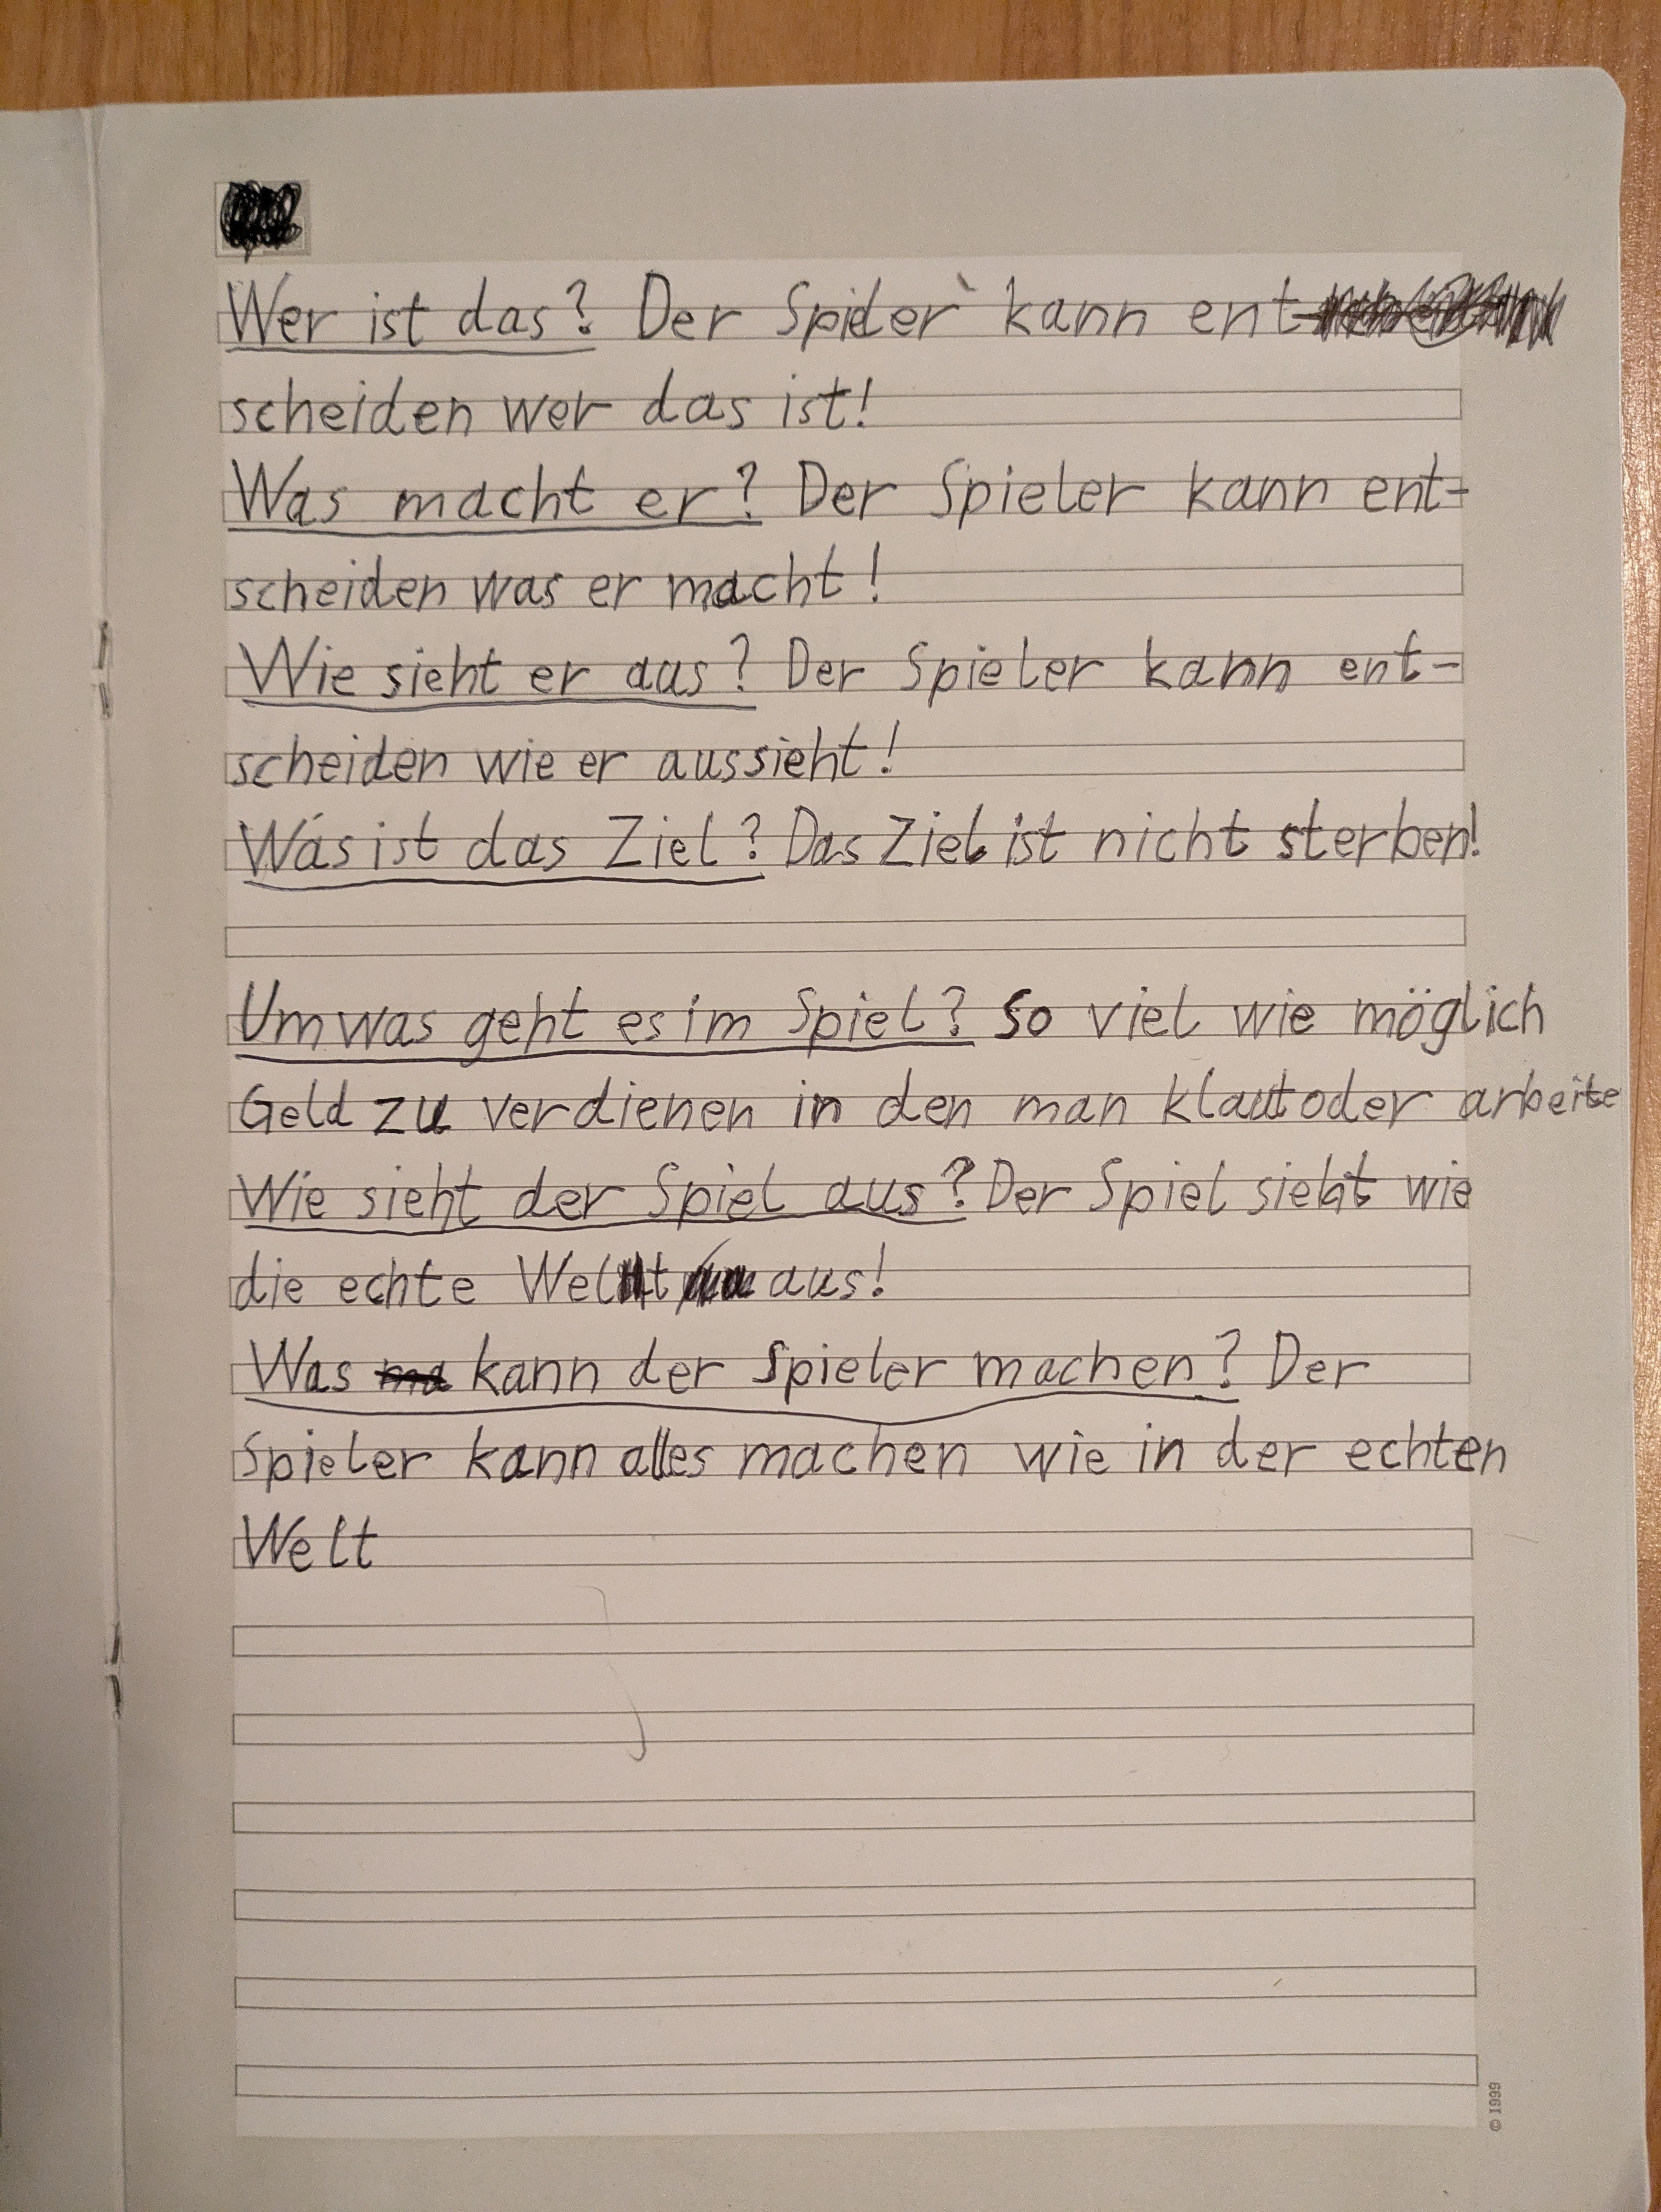 Wer ist das? Der Spieler kann ent-
scheiden wer das ist!
Was macht er? Der Spieler kann ent-
scheiden was er macht!
Wie sieht er aus? Der Spieler kann ent-
scheiden wie er aussieht!
Was ist das Ziel? Das Ziel ist nicht sterben!
Um was geht es im Spiel? So viel wie möglich
Geld zu verdienen in den man klaut oder arbeite
Wie sieht der Spiel aus? Der Spiel sieht wie
die echte Welt aus!
Was kann der Spieler machen? Der
Spieler kann alles machen wie in der echten
Welt
© 1999